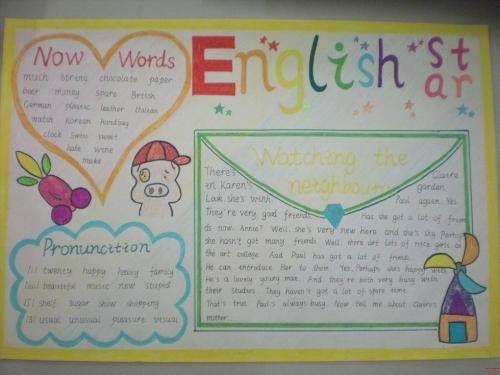 English Star
Now Words
much string chocolate paper
beer money spare British
German plastic leather Italian
watch Korean handbag
clock Swiss sweet
hate wine
make
Pronuncition
/i/ twenty happy heavy family
/u:/ beautiful music new stupid
/ʃ/ shelf sugar show shopping
/ʒ/ usual unusual pleasure visual
Watching the
neighbours
There's Claire
in Karen's garden.
Look, she's with Paul again. Yes.
They're very good friends. Has she got a lot of frien
ds now, Annie? Well, she's very new here and she's shy. Perhaps
she hasn't got many friends. Well, there are lots of nice girls at
the art college. And Paul has got a lot of friends.
He can introduce her to them. Yes, Perhaps she's happy with
He's a lovely young man. And they're both very busy with
their studies. They haven't got a lot of spare time.
That's true. Paul's always busy. Now tell me about Claire's
mother...